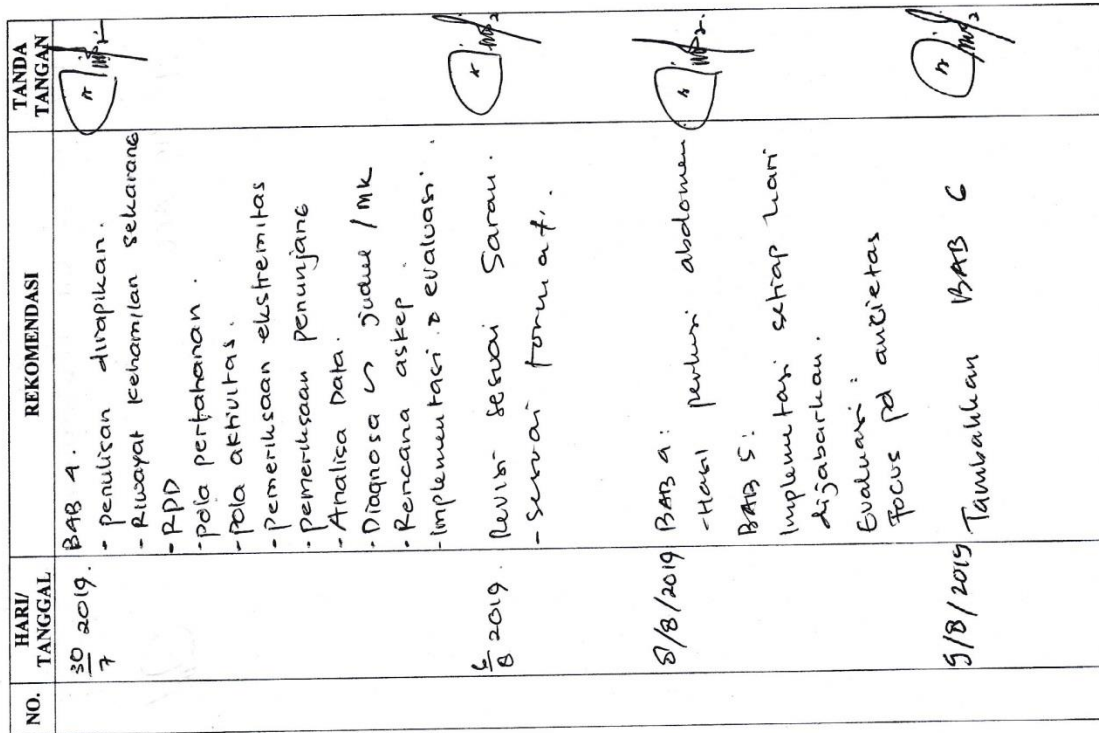 NO.
HARI/
TANGGAL
REKOMENDASI
TANDA
TANGAN
30/7 2019.
BAB 4.
- penulisan dirapikan.
- Riwayat kehamilan sekarang
- RPD
- pola pertahanan.
- pola aktivitas.
- pemeriksaan ekstremitas
- pemeriksaan penunjang
- Analisa Data.
- Diagnosa ~ judul / MK
- Rencana askep
- Implementasi & evaluasi.
6/8 2019.
Revisi sesuai Saran.
- sesuai format.
8/8/2019
BAB 4:
- Hasil perkusi abdomen
BAB 5:
Implementasi setiap hari
dijabarkan.
Evaluasi:
Focus pd ancietas
9/8/2019
Tambahkan BAB 6